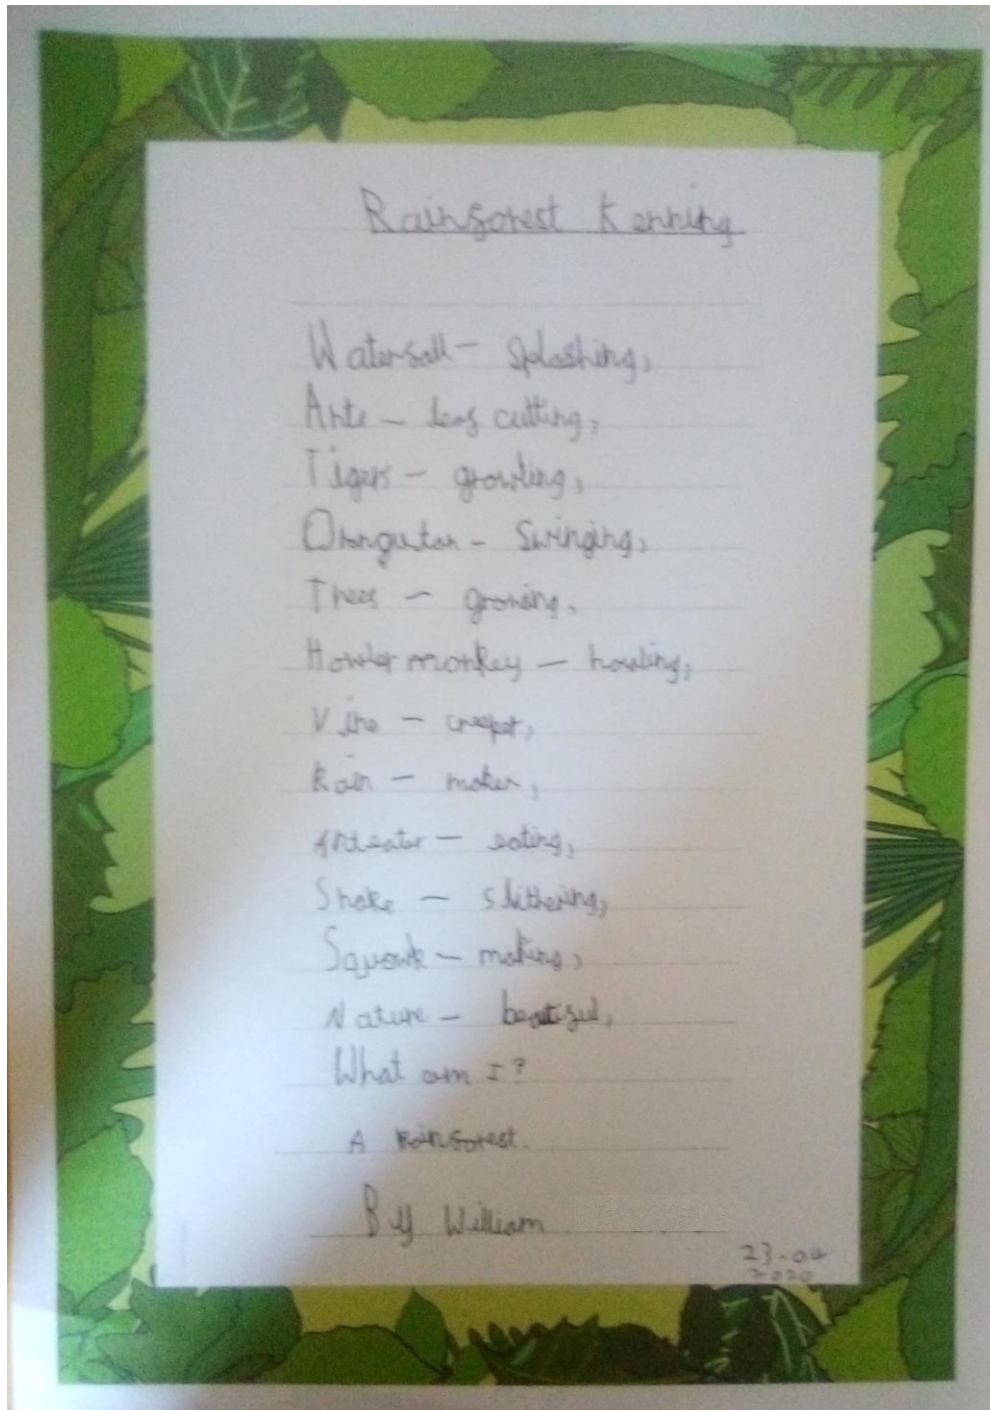 Rainforest Kenning
Waterfall - splashing,
Ants - leaf cutting,
Tigers - growling,
Orangutan - Swinging,
Trees - growing,
Howler monkey - howling,
Vine - creeper,
Rain - maker,
Anteater - eating,
Snake - slithering,
Squawk - making,
Nature - beatiful,
What am I?
A Rainforest.
By William
23-04
2020